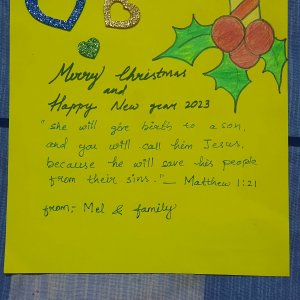 Merry Christmas
and
Happy New year 2023
"she will give birth to a son,
and you will call him Jesus,
because he will save his people
from their sins."— Matthew 1:21
from:- Mel & family